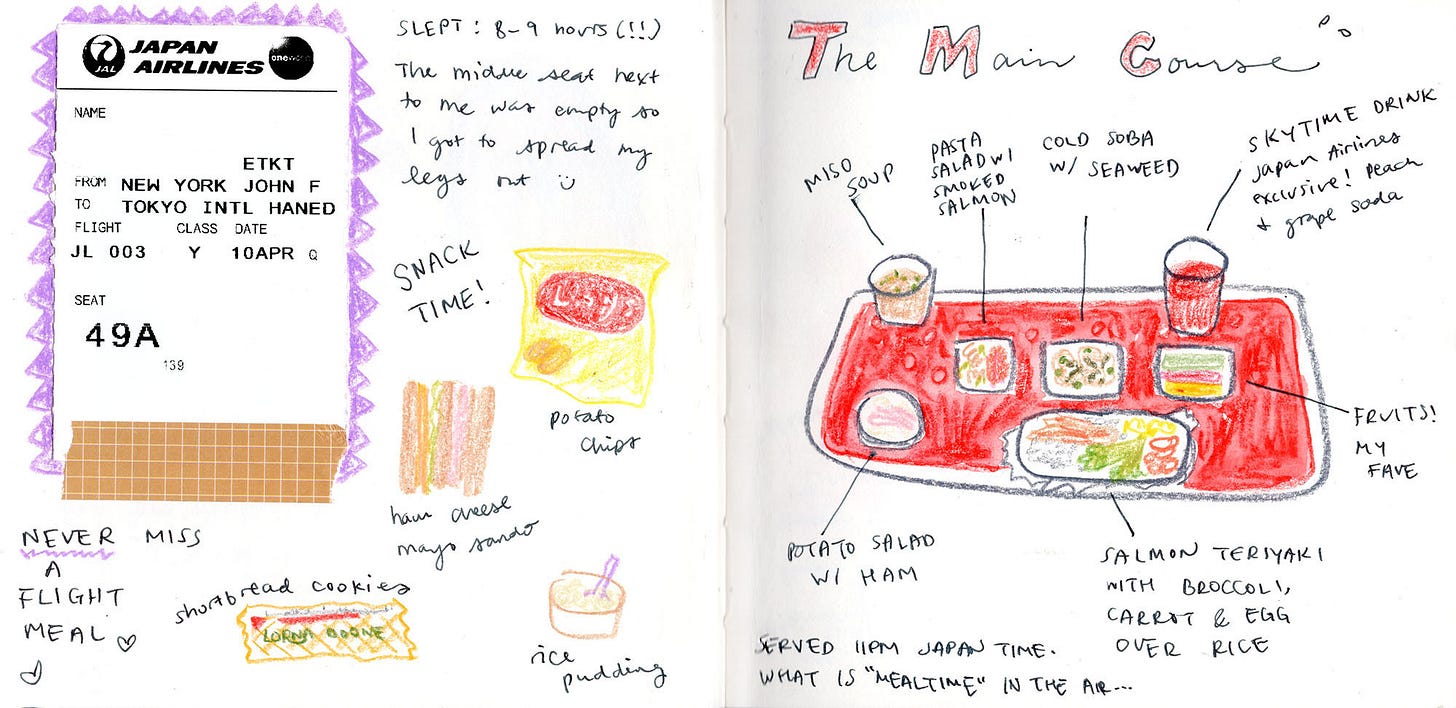 JAL
JAPAN
AIRLINES
oneworld
NAME
ETKT
FROM NEW YORK JOHN F
TO TOKYO INTL HANED
FLIGHT CLASS DATE
JL 003 Y 10APR Q
SEAT
49A
139
SLEPT: 8-9 hours (!!)
The middle seat next
to me was empty so
I got to spread my
legs out
SNACK
TIME!
LAY'S
potato
chips
ham cheese
mayo sando
NEVER MISS
A
FLIGHT
MEAL
shortbread cookies
LORNA DOONE
rice
pudding
The Main Course
MISO
SOUP
PASTA
SALAD W/
SMOKED
SALMON
COLD SOBA
W/ SEAWEED
SKYTIME DRINK
Japan Airlines
exclusive! Peach
+ grape soda
FRUITS!
MY
FAVE
POTATO SALAD
W/ HAM
SALMON TERIYAKI
WITH BROCCOLI,
CARROT & EGG
OVER RICE
SERVED 11PM JAPAN TIME.
WHAT IS "MEALTIME" IN THE AIR...